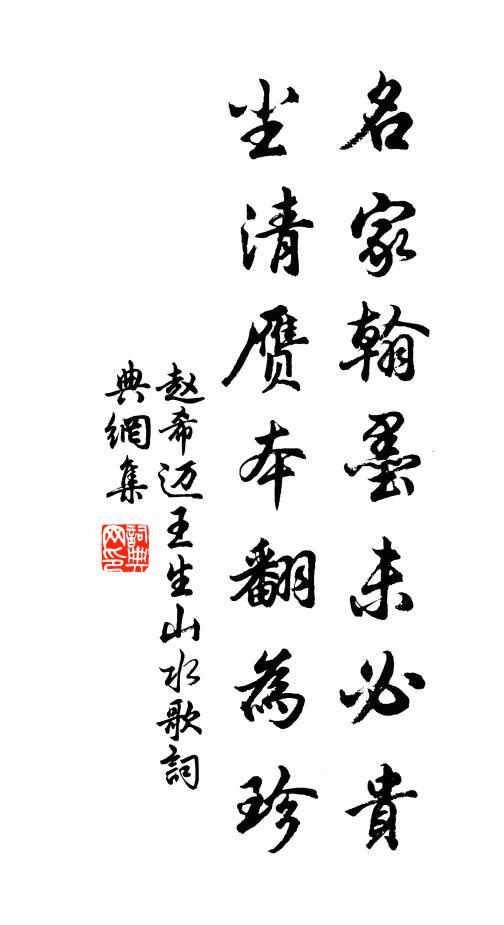 名家翰墨未必貴
尘清贋本翻為珍
赵希迈王生山水歌詞
典網集
詞典
网印